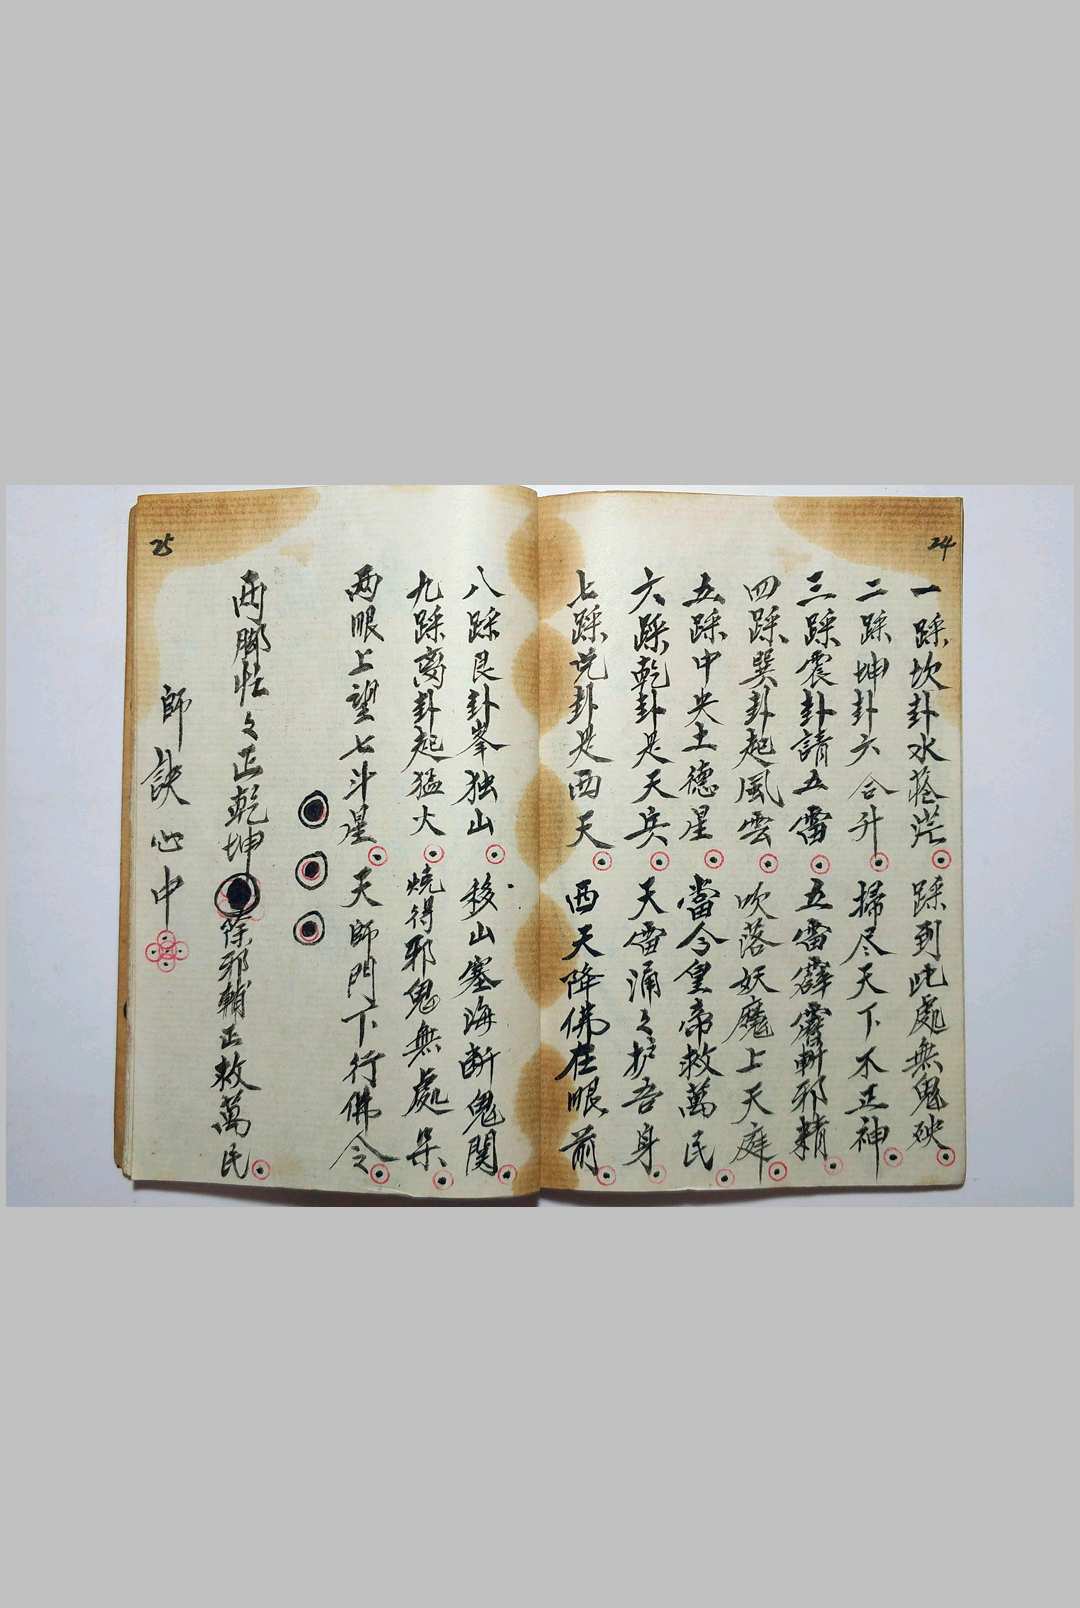 24
一踩坎卦水茫 踩到此處無鬼殃
二踩坤卦六合升 掃尽天下不正神
三踩震卦請五雷 五雷霹靂斬邪精
四踩巽卦起風雲 吹落妖魔上天庭
五踩中央土德星 當今皇帝救萬民
六踩乾卦是天兵 天雷涌々护吾身
七踩兑卦是西天 西天降佛在眼前
25
八踩艮卦峯独山 移山塞海断鬼関
九踩离卦起猛火 燒得邪鬼無處呆
兩眼上望七斗星 天師門下行佛令
兩腳忙々正乾坤 除邪輔正救萬民
師訣心中